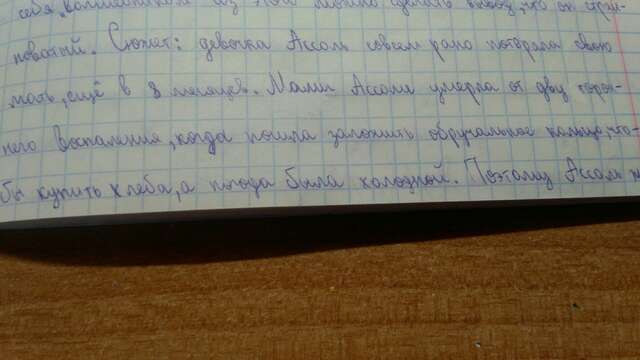 себя, волшебником из этой можно сделать вывод, что он стран-
новатый. Сюжет: девочка Ассоль совсем рано потеряла свою
мать, ещё в 8 месяцев. Мама Ассоль умерла от двустороннего
него воспаления, когда пошла заложить обручальное кольцо, что-
бы купить хлеба, а погода была холодной. Поэтому Ассоль